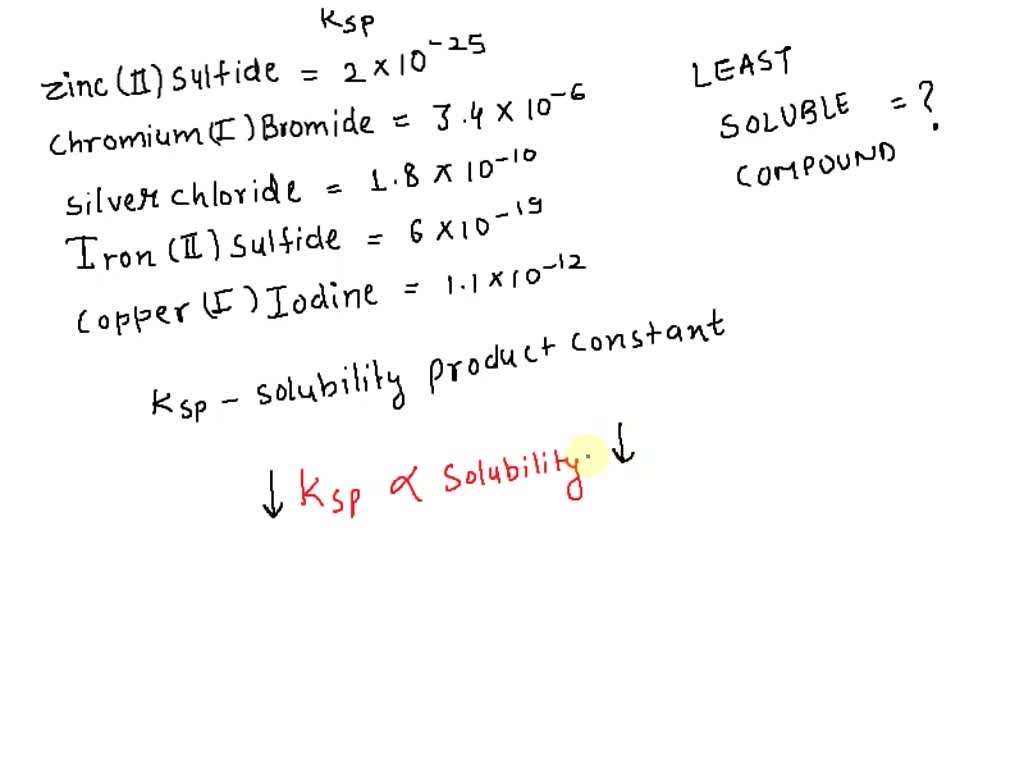 Ksp
Zinc (II) Sulfide = 2 × 10⁻²⁵
Chromium (I) Bromide = 3.4 × 10⁻⁶
Silver chloride = 1.8 × 10⁻¹⁰
Iron (II) Sulfide = 6 × 10⁻¹⁹
Copper (I) Iodine = 1.1 × 10⁻¹²
LEAST
SOLUBLE = ?
COMPOUND
Ksp – solubility product constant
↓ Ksp ∝ Solubility ↓